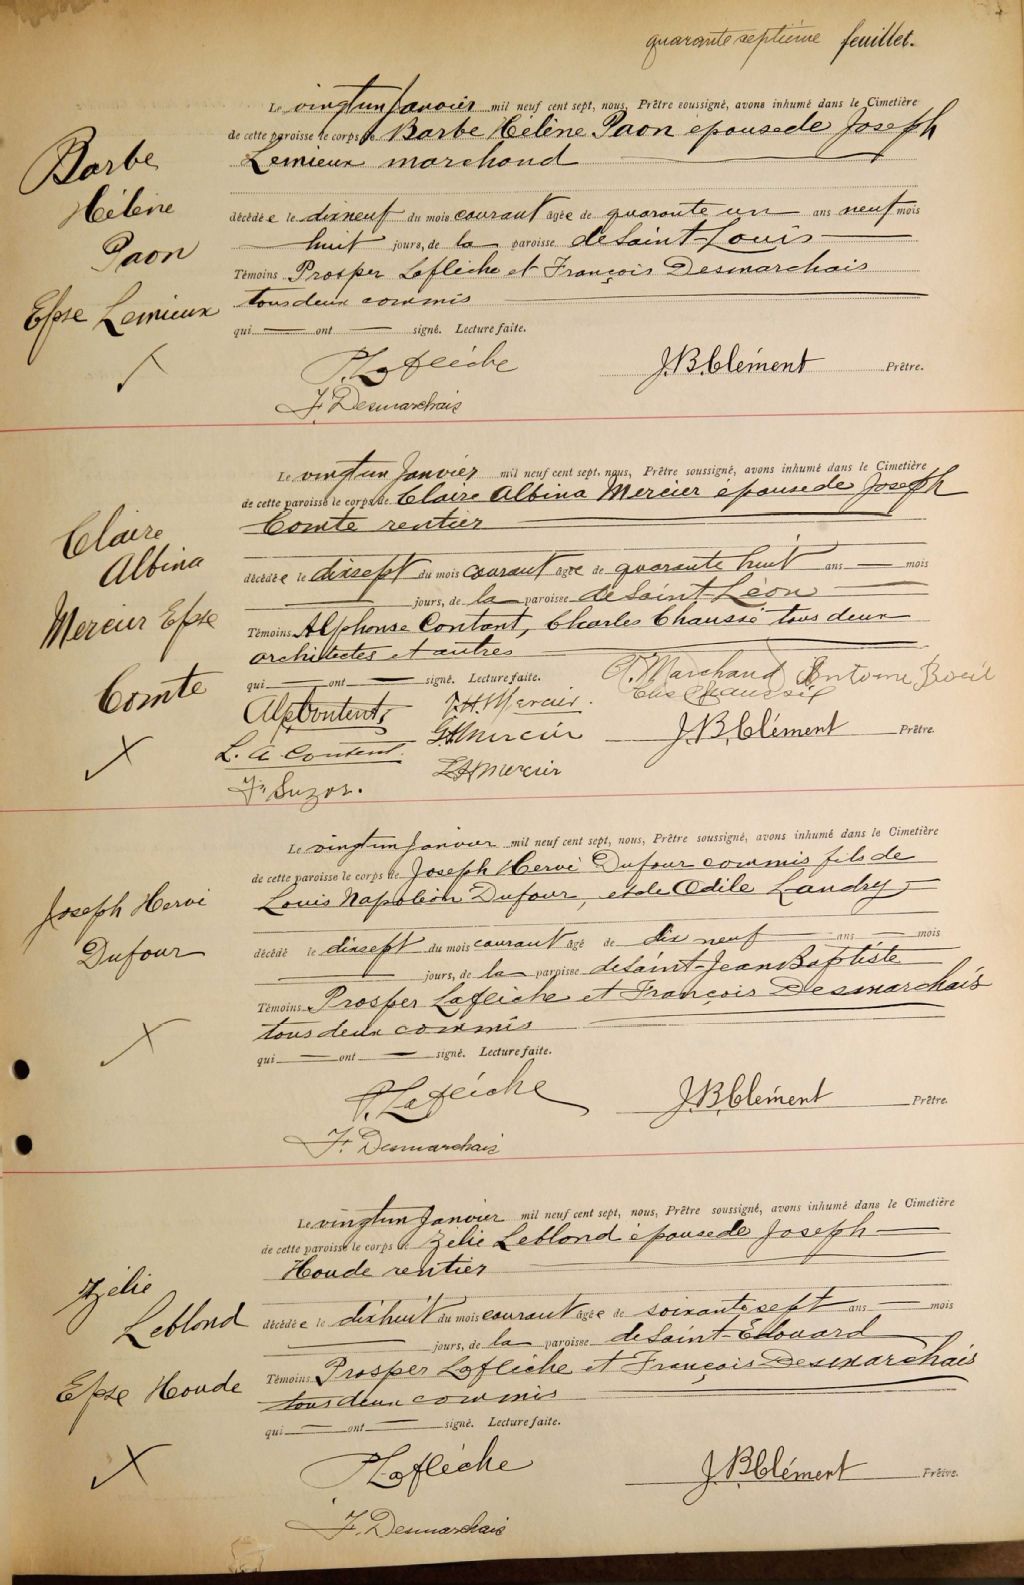 quarante septième feuillet.
Le vingt un Janvier mil neuf cent sept, nous, Prêtre soussigné, avons inhumé dans le Cimetière
de cette paroisse le corps de Barbe Hélène Paon épouse de Joseph
Lemieux marchand
Barbe
Hélène
Paon
Epse Lemieux
décédée le dix neuf du mois courant âgée de quarante un ans neuf mois
huit jours, de la paroisse de Saint-Louis
Témoins Prosper Laflèche et François Desmarchais
tous deux commis
qui ont signé. Lecture faite.
P. Laflèche J. B. Clément Prêtre.
F. Desmarchais
Le vingt un Janvier mil neuf cent sept, nous, Prêtre soussigné, avons inhumé dans le Cimetière
de cette paroisse le corps de Claire Albina Mercier épouse de Joseph
Comte rentier
Claire
Albina
Mercier Epse
Comte
décédée le dix sept du mois courant âgée de quarante huit ans mois
jours, de la paroisse de Saint-Léon
Témoins Alphonse Contant, Charles Chaussé tous deux
architectes et autres
qui ont signé. Lecture faite. Marchand Antoine
Alp Content J. H. Mercier.
L. A Content. G. H Mercier J. B. Clément Prêtre.
L H Mercier
Le vingt un Janvier mil neuf cent sept, nous, Prêtre soussigné, avons inhumé dans le Cimetière
de cette paroisse le corps de Joseph Hervé Dufour commis fils de
Louis Napoléon Dufour, et de Odile Landry
Joseph Hervé
Dufour
décédé le dix sept du mois courant âgé de dix neuf ans mois
jours, de la paroisse de Saint-Jean Baptiste
Témoins Prosper Laflèche et François Desmarchais
tous deux commis
qui ont signé. Lecture faite.
P. Laflèche J. B. Clément Prêtre.
F. Desmarchais
Le vingt un Janvier mil neuf cent sept, nous, Prêtre soussigné, avons inhumé dans le Cimetière
de cette paroisse le corps de Zélie Leblond épouse de Joseph
Houde rentier
Zélie
Leblond
Epse Houde
décédée le dix huit du mois courant âgée de soixante sept ans mois
jours, de la paroisse de Saint-Edouard
Témoins Prosper Laflèche et François Desmarchais
tous deux commis
qui ont signé. Lecture faite.
P Laflèche J. B. Clément Prêtre.
F. Desmarchais